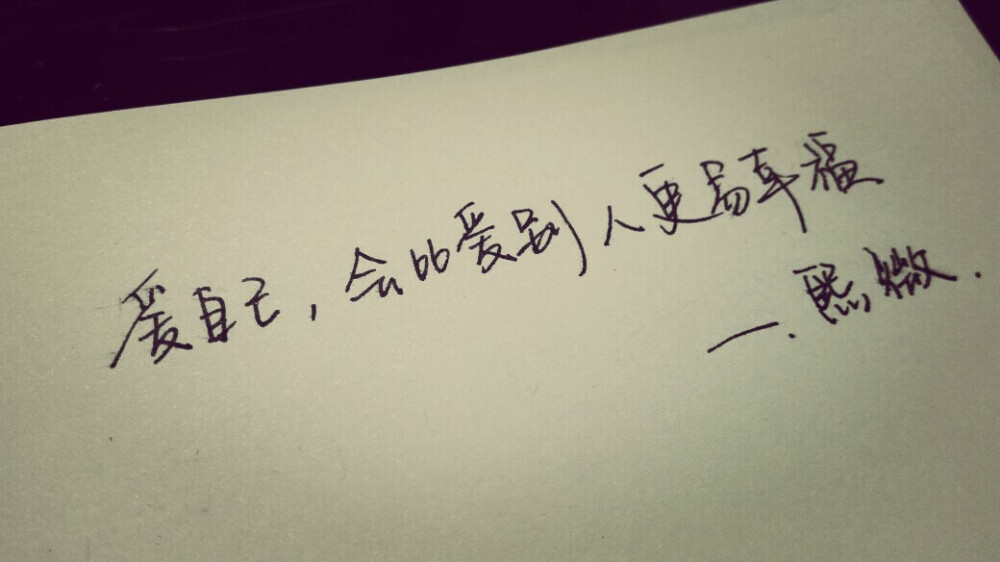 爱自己，会比爱别人更易幸福
一.熙微.